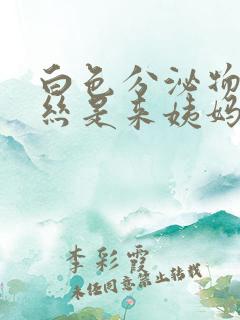 白色分泌物
丝是来姨妈
李彩霞
未经同意禁止转载